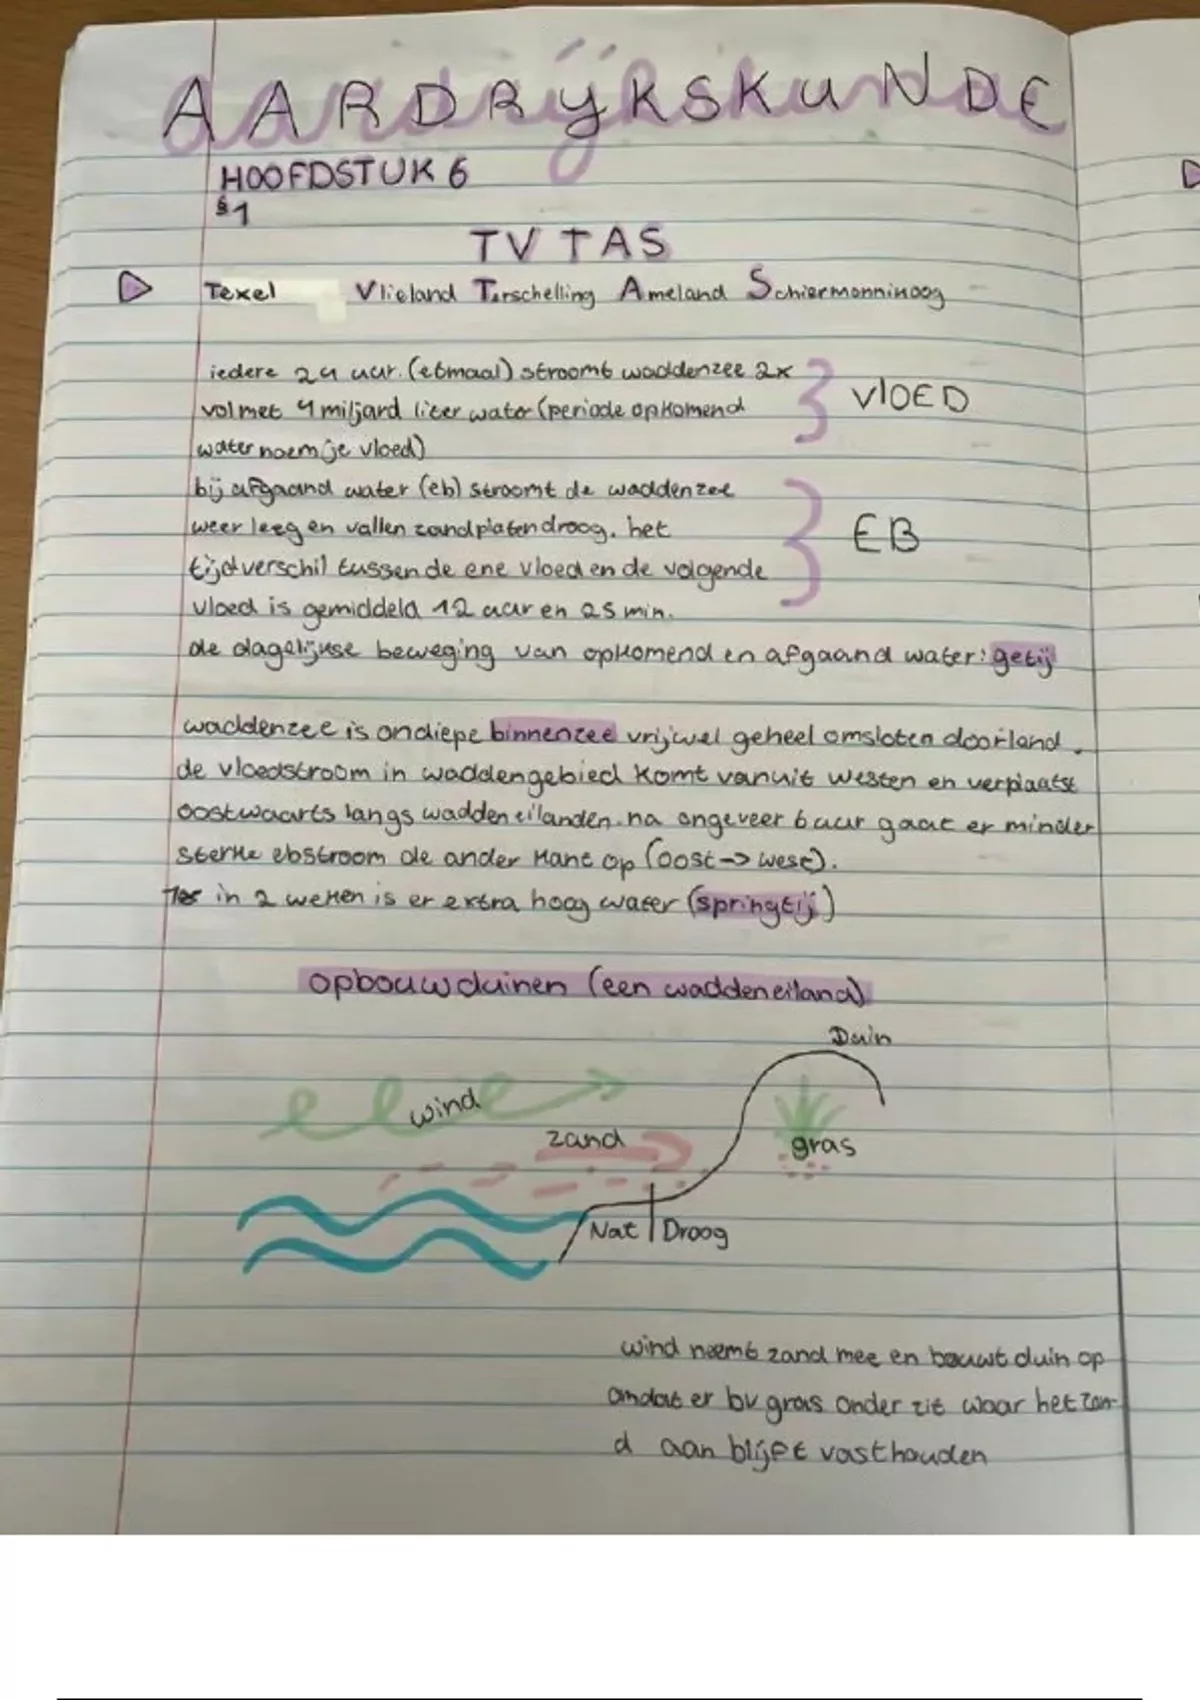 AARDRYKSKUNDE
HOOFDSTUK 6
§1
TV TAS
Texel Vlieland Terschelling Ameland Schiermonninoog
iedere 24 uur. (etmaal) stroomt waddenzee 2x
vol met 4 miljard liter water (periode opkomend
water noem je vloed)
VLOED
bij afgaand water (eb) stroomt de waddenzee
weer leeg en vallen zandplaten droog. het
tijdverschil tussen de ene vloed en de volgende
vloed is gemiddeld 12 uur en 25 min.
EB
de dagelijkse beweging van opkomend en afgaand water: getij
waddenzee is ondiepe binnenzee vrijwel geheel omsloten door land.
de vloedstroom in waddengebied komt vanuit westen en verplaatst
oostwaarts langs wadden eilanden. na ongeveer 6 uur gaat er minder
sterke ebstroom de ander kant op (oost -> west).
in 2 weken is er extra hoog water (springtij)
opbouw duinen (een waddeneiland)
Duin
wind
zand
gras
Nat | Droog
wind neemt zand mee en bouwt duin op
omdat er bv gras onder zit waar het zan-
d aan blijft vasthouden